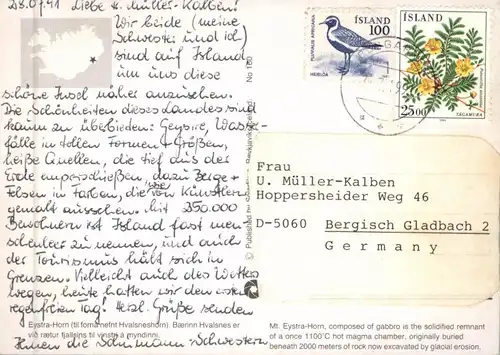 28.07.91 Liebe Fr. Müller-Kalben!
Wir beide (meine
Schwester und ich)
sind auf Island
um uns diese
schöne Insel näher anzusehen.
Die Schönheiten dieses Landes sind
kaum zu überbieten: Geysire, Wasser-
fälle in tollen Formen + Größen,
heiße Quellen, die tief aus der
Erde emporschießen, dazu Berge +
Felsen in Farben, die wie von Künstlern
gemalt aussehen. Mit 250.000
Bewohnern ist Island fast men-
schenleer zu nennen, und auch
der Tourismus hält sich in
Grenzen. Vielleicht auch des Wetters
wegen, heute hatten wir den ersten
regenfreien Tag! Herzl. Grüße senden
Ihnen die Schürmann Schwestern
No 169
© Published
PLUVIALIS APRICARIA
HEIÐLÓA
ÍSLAND
100
ÍSLAND
2500
TÁGAMURA
Frau
U. Müller-Kalben
Hoppersheider Weg 46
D-5060 Bergisch Gladbach 2
Germany
Eystra-Horn (til forna nefnt Hvalsneshorn). Bærinn Hvalsnes er
við rætur fjallsins til vinstri á myndinni.
Mt. Eystra-Horn, composed of gabbro is the solidified remnant
of a once 1100°C hot magma chamber, originally buried
beneath 2000 meters of rock now excavated by glacial erosion.